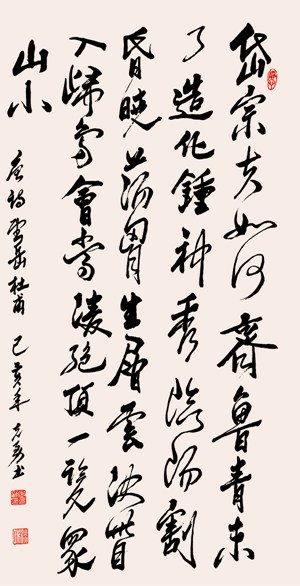 岱宗夫如何齊魯青未
了造化鍾神秀陰陽割
昏曉蕩胸生層雲決眥
入歸鳥會當凌絕頂一覽衆
山小
唐詩望岳杜甫 己亥年